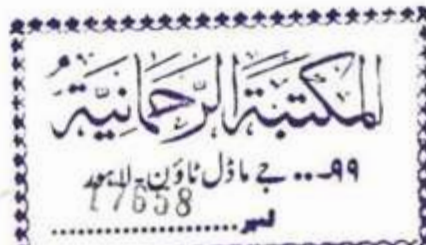 المكتبة الرحمانية
۹۹... جے ماڈل ٹاؤن۔ لاہور
17658
نمبر....................